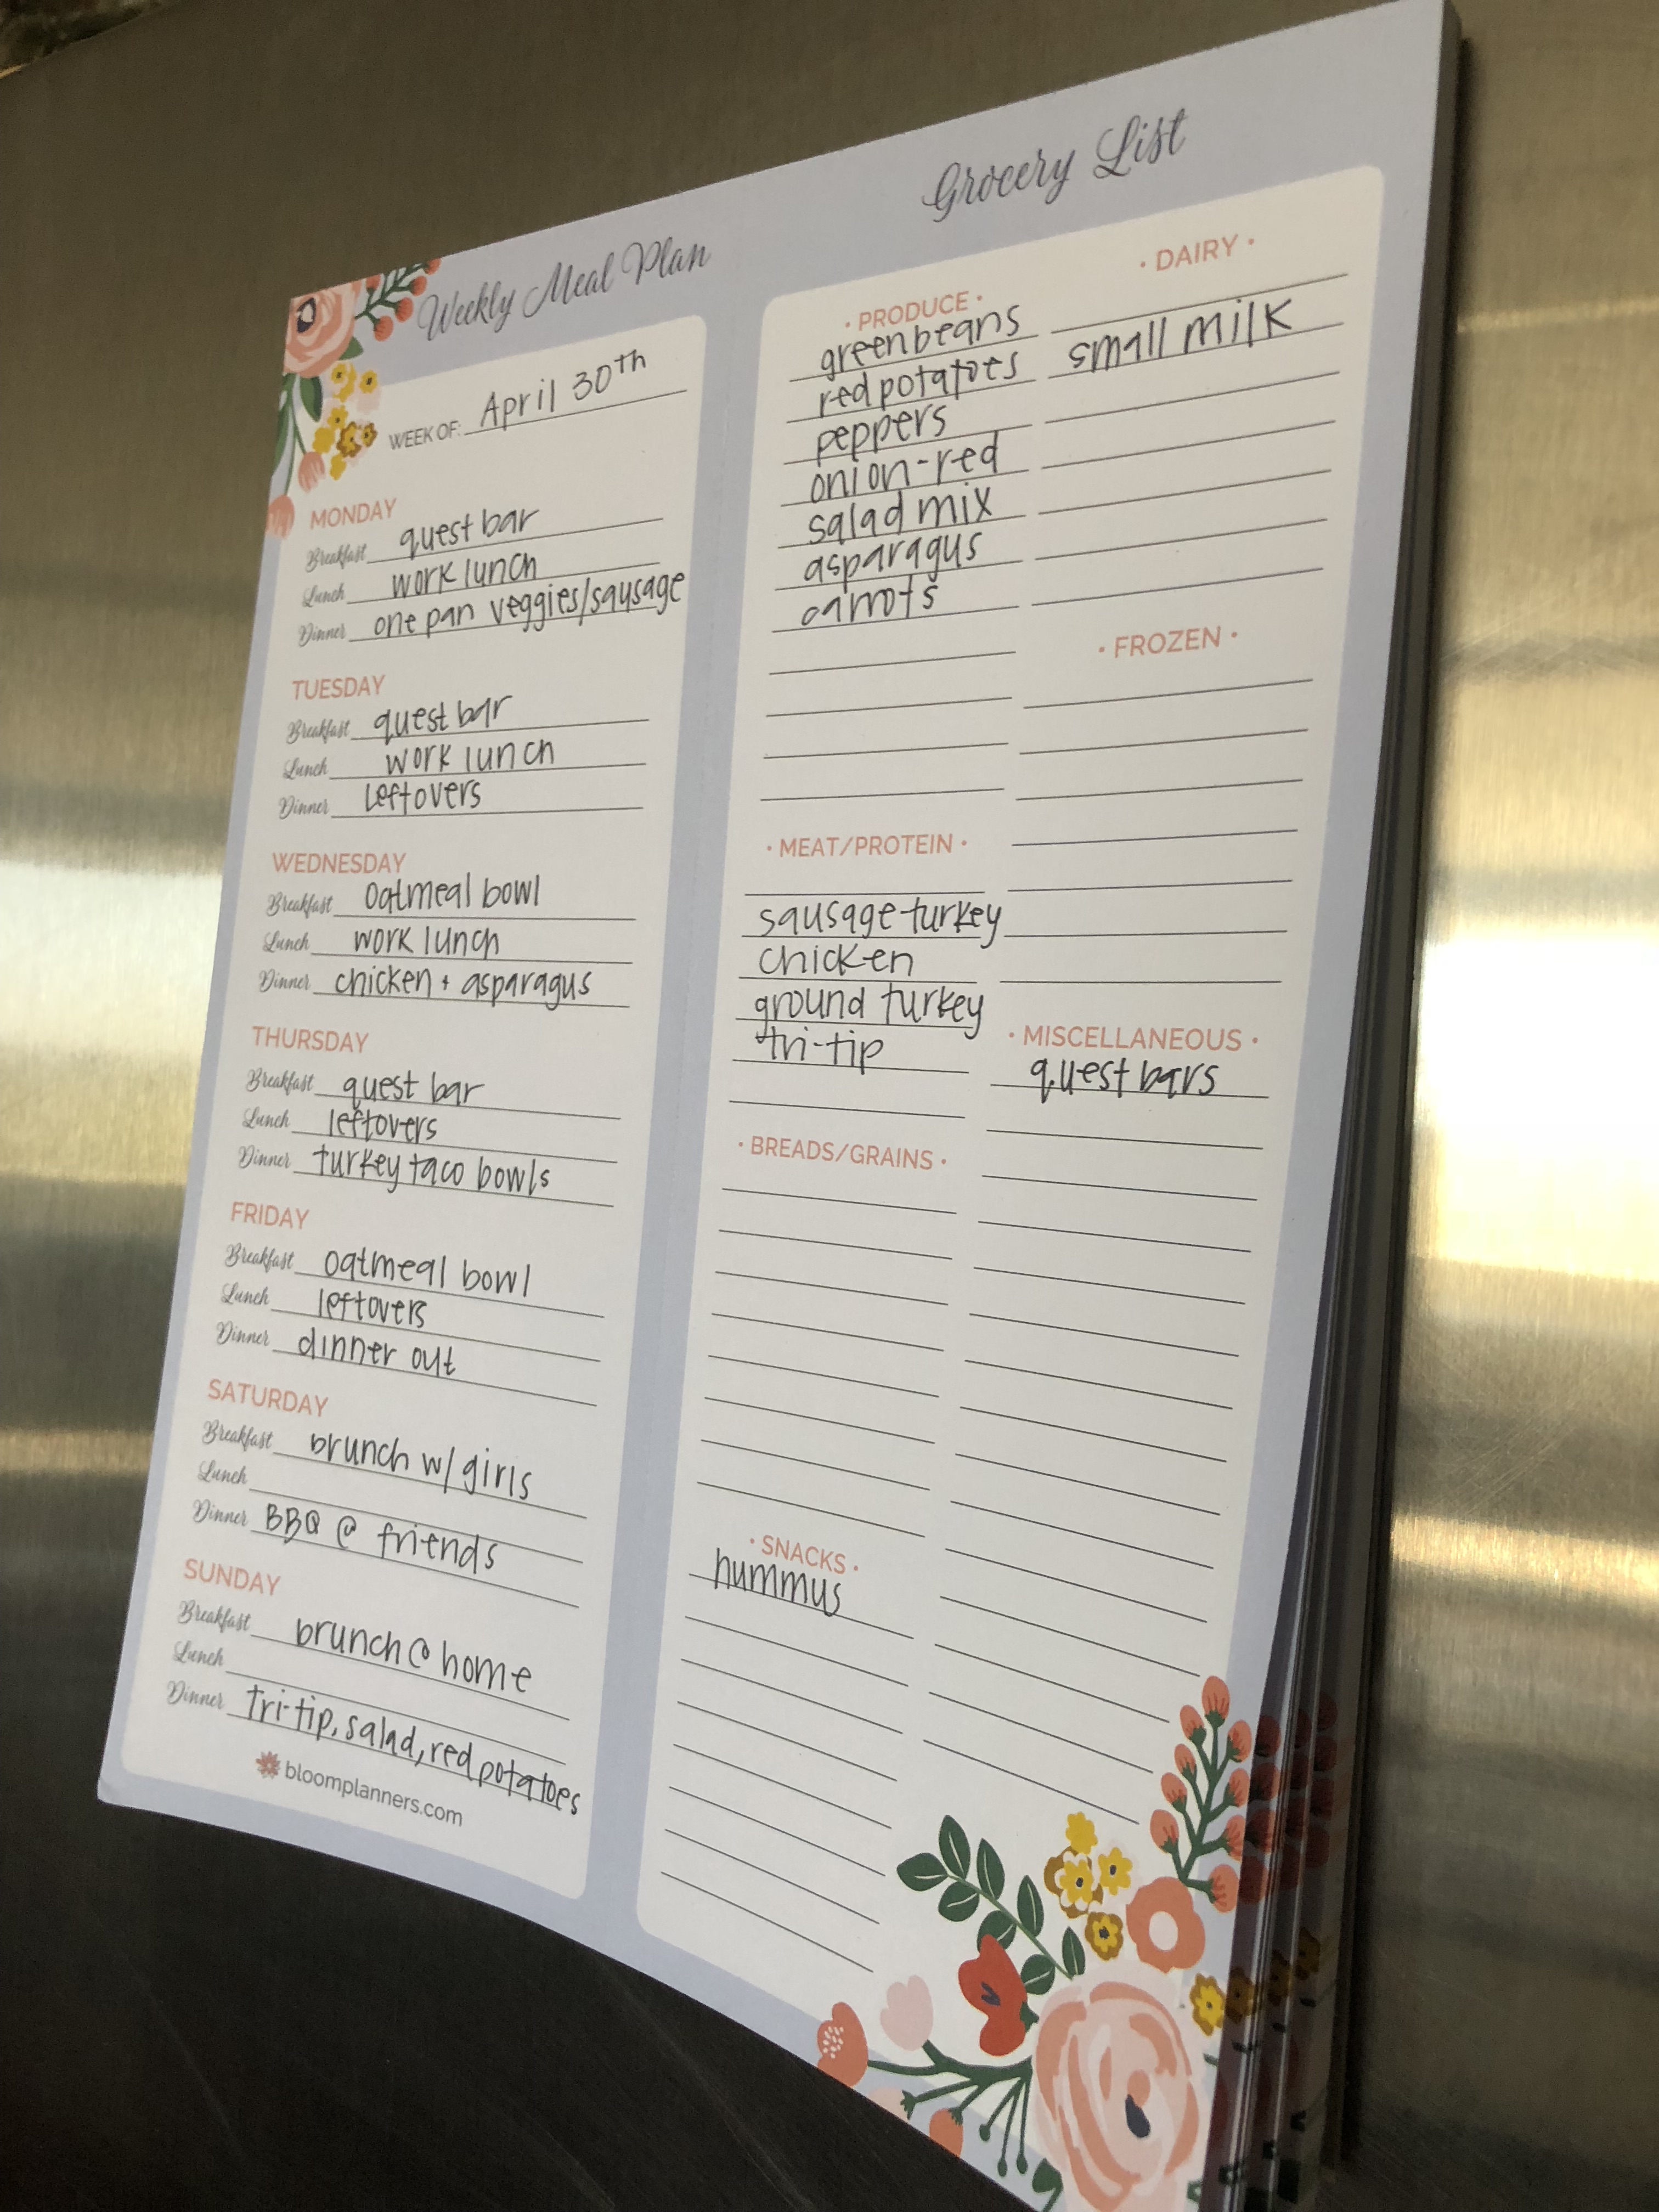 Weekly Meal Plan
WEEK OF: April 30th
MONDAY
Breakfast quest bar
Lunch work lunch
Dinner one pan veggies/sausage
TUESDAY
Breakfast quest bar
Lunch work lunch
Dinner leftovers
WEDNESDAY
Breakfast oatmeal bowl
Lunch work lunch
Dinner chicken + asparagus
THURSDAY
Breakfast quest bar
Lunch leftovers
Dinner turkey taco bowls
FRIDAY
Breakfast oatmeal bowl
Lunch leftovers
Dinner dinner out
SATURDAY
Breakfast brunch w/ girls
Lunch
Dinner BBQ @ friends
SUNDAY
Breakfast brunch @ home
Lunch
Dinner Tri-tip, salad, red potatoes
bloomplanners.com
Grocery List
• PRODUCE •
green beans
red potatoes
peppers
onion-red
salad mix
asparagus
carrots
• MEAT/PROTEIN •
sausage-turkey
chicken
ground turkey
tri-tip
• BREADS/GRAINS •
• SNACKS •
hummus
• DAIRY •
small milk
• FROZEN •
• MISCELLANEOUS •
quest bars